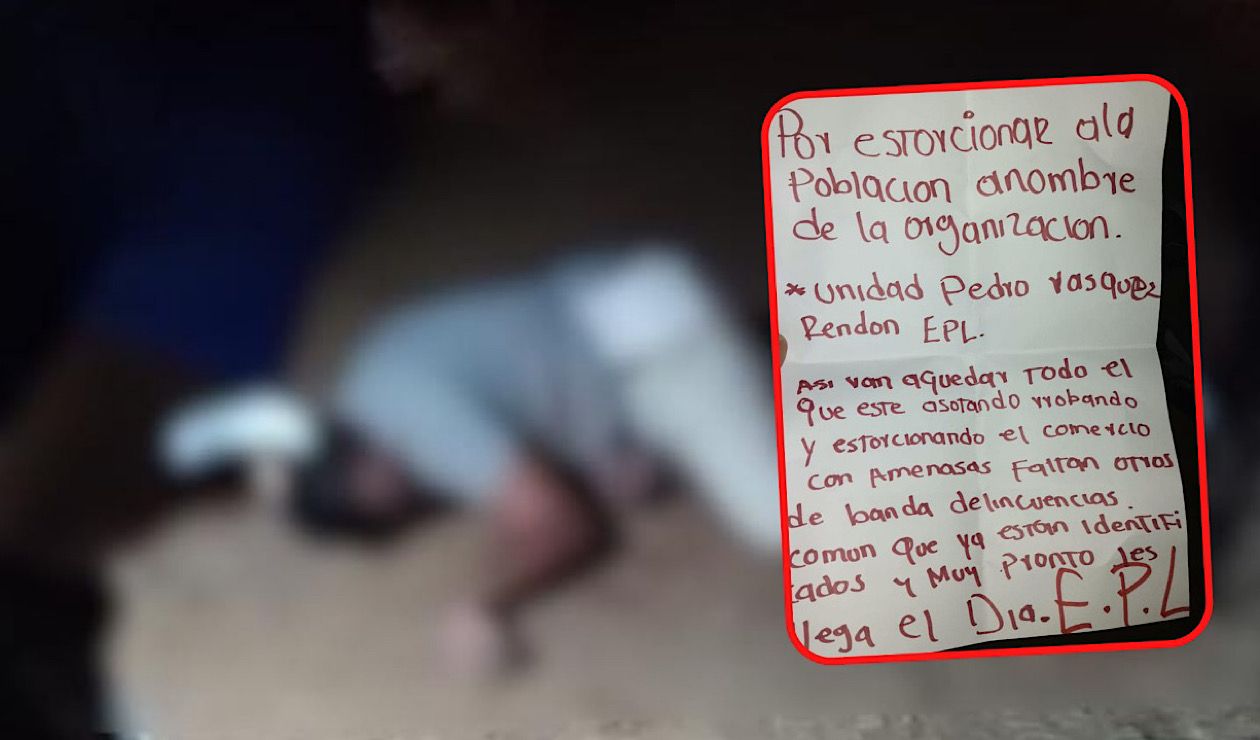 Por estorcionar ala
Poblacion anombre
de la organizacion.
* unidad Pedro vasquez
Rendon EPL.
Asi van aquedar Todo el
que este asotando rrobando
y estorcionando el comercio
con Amenasas Faltan otros
de banda delincuencias.
comun que ya están identifi
cados y Muy Pronto les
llega el Dia. E.P.L